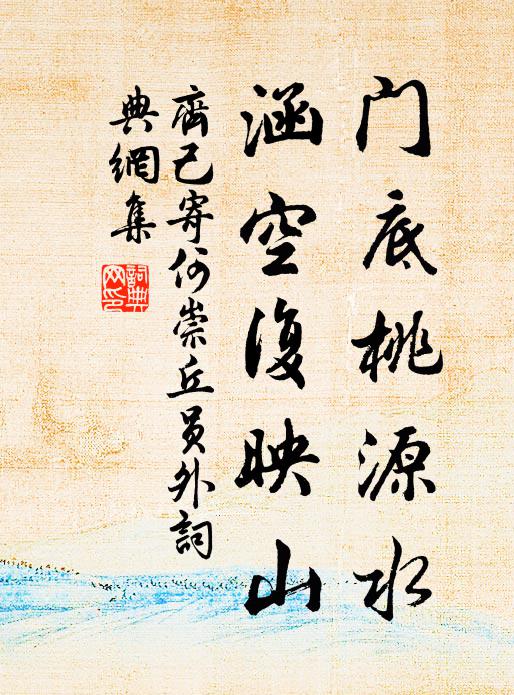 门底桃源水
涵空复映山
齊己寄何崇丘員外詞
典網集
詞典
网印